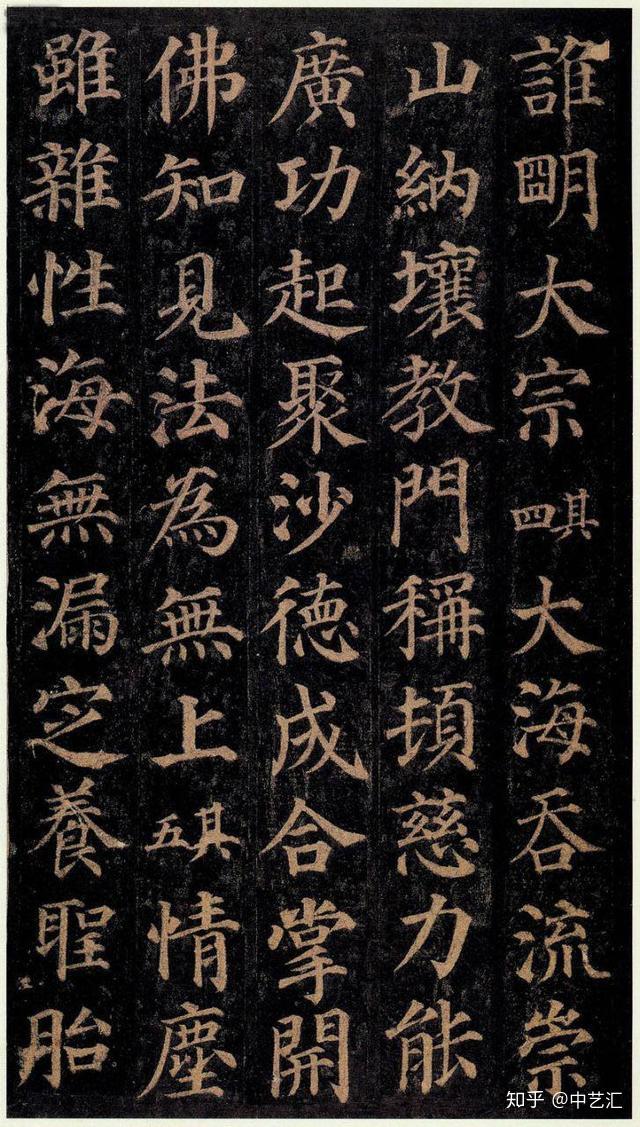 誰朙大宗其四大海吞流崇
山納壤教門稱頓慈力能
廣功起聚沙徳成合掌開
佛知見法為無上其五情塵
雖雜性海無漏㝎養聖胎
知乎 @中艺汇